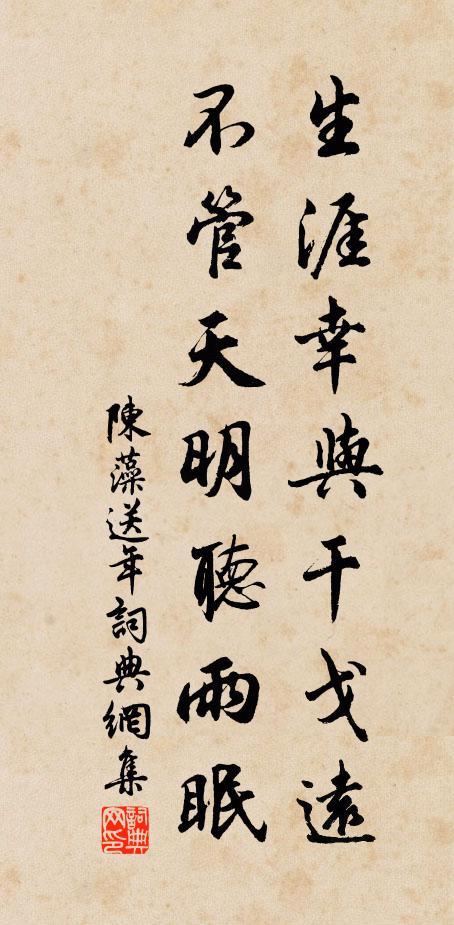 生涯幸與干戈遠
不管天明聽雨眠
陳藻送年詞典網集
詞典网印